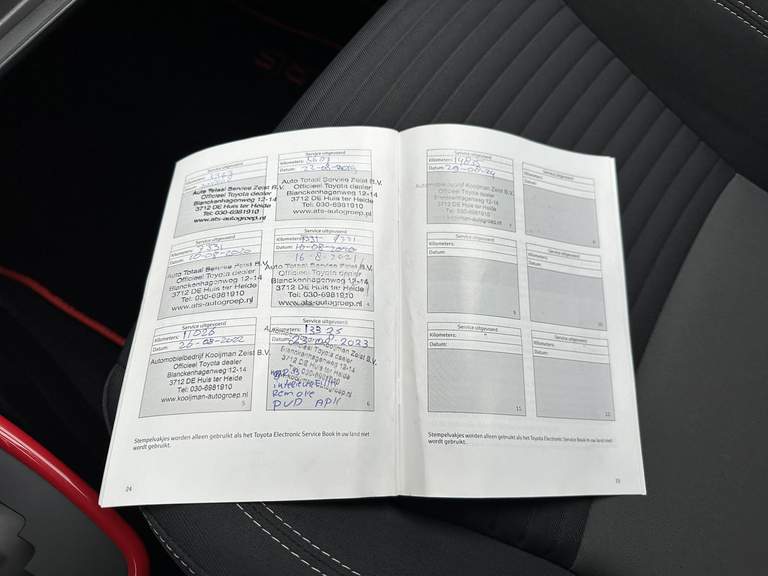 Service uitgevoerd
Auto Totaal Service Zeist B.V.
Officieel Toyota dealer
Blanckenhagenweg 12-14
3712 DE Huis ter Heide
Tel: 030-6981910
www.ats-autogroep.nl
Service uitgevoerd
Kilometers:
Datum:
Auto Totaal Service Zeist B.V.
Officieel Toyota dealer
Blanckenhagenweg 12-14
3712 DE Huis ter Heide
Tel: 030-6981910
www.ats-autogroep.nl
Service uitgevoerd
10-08-2020
Auto Totaal Service Zeist B.V.
Officieel Toyota dealer
Blanckenhagenweg 12-14
3712 DE Huis ter Heide
Tel: 030-6981910
www.ats-autogroep.nl
Service uitgevoerd
Kilometers:
Datum: 10-08-2020
16-8-2021
Auto Totaal Service Zeist B.V.
Officieel Toyota dealer
Blanckenhagenweg 12-14
3712 DE Huis ter Heide
Tel: 030-6981910
www.ats-autogroep.nl
Service uitgevoerd
11026
26-08-2022
Automobielbedrijf Kooijman Zeist B.V.
Officieel Toyota dealer
Blanckenhagenweg 12-14
3712 DE Huis ter Heide
Tel: 030-6981910
www.kooijman-autogroep.nl
5
Service uitgevoerd
Kilometers: 13325
Officieel Toyota dealer
Blanckenhagenweg 12-14
3712 DE Huis ter Heide
Tel: 030-6981910
interieurfilter
Remove
6
Stempelvakjes worden alleen gebruikt als het Toyota Electronic Service Book in uw land niet
wordt gebruikt.
24
Service uitgevoerd
Kilometers:
Datum:
Automobielbedrijf Kooijman Zeist B.V.
Officieel Toyota dealer
Blanckenhagenweg 12-14
3712 DE Huis ter Heide
Tel: 030-6981910
www.kooijman-autogroep.nl
7
Service uitgevoerd
Kilometers:
Datum:
8
Service uitgevoerd
Kilometers:
Datum:
9
Service uitgevoerd
Kilometers:
Datum:
10
Service uitgevoerd
Kilometers:
Datum:
11
Service uitgevoerd
Kilometers:
Datum:
12
Stempelvakjes worden alleen gebruikt als het Toyota Electronic Service Book in uw land niet
wordt gebruikt.